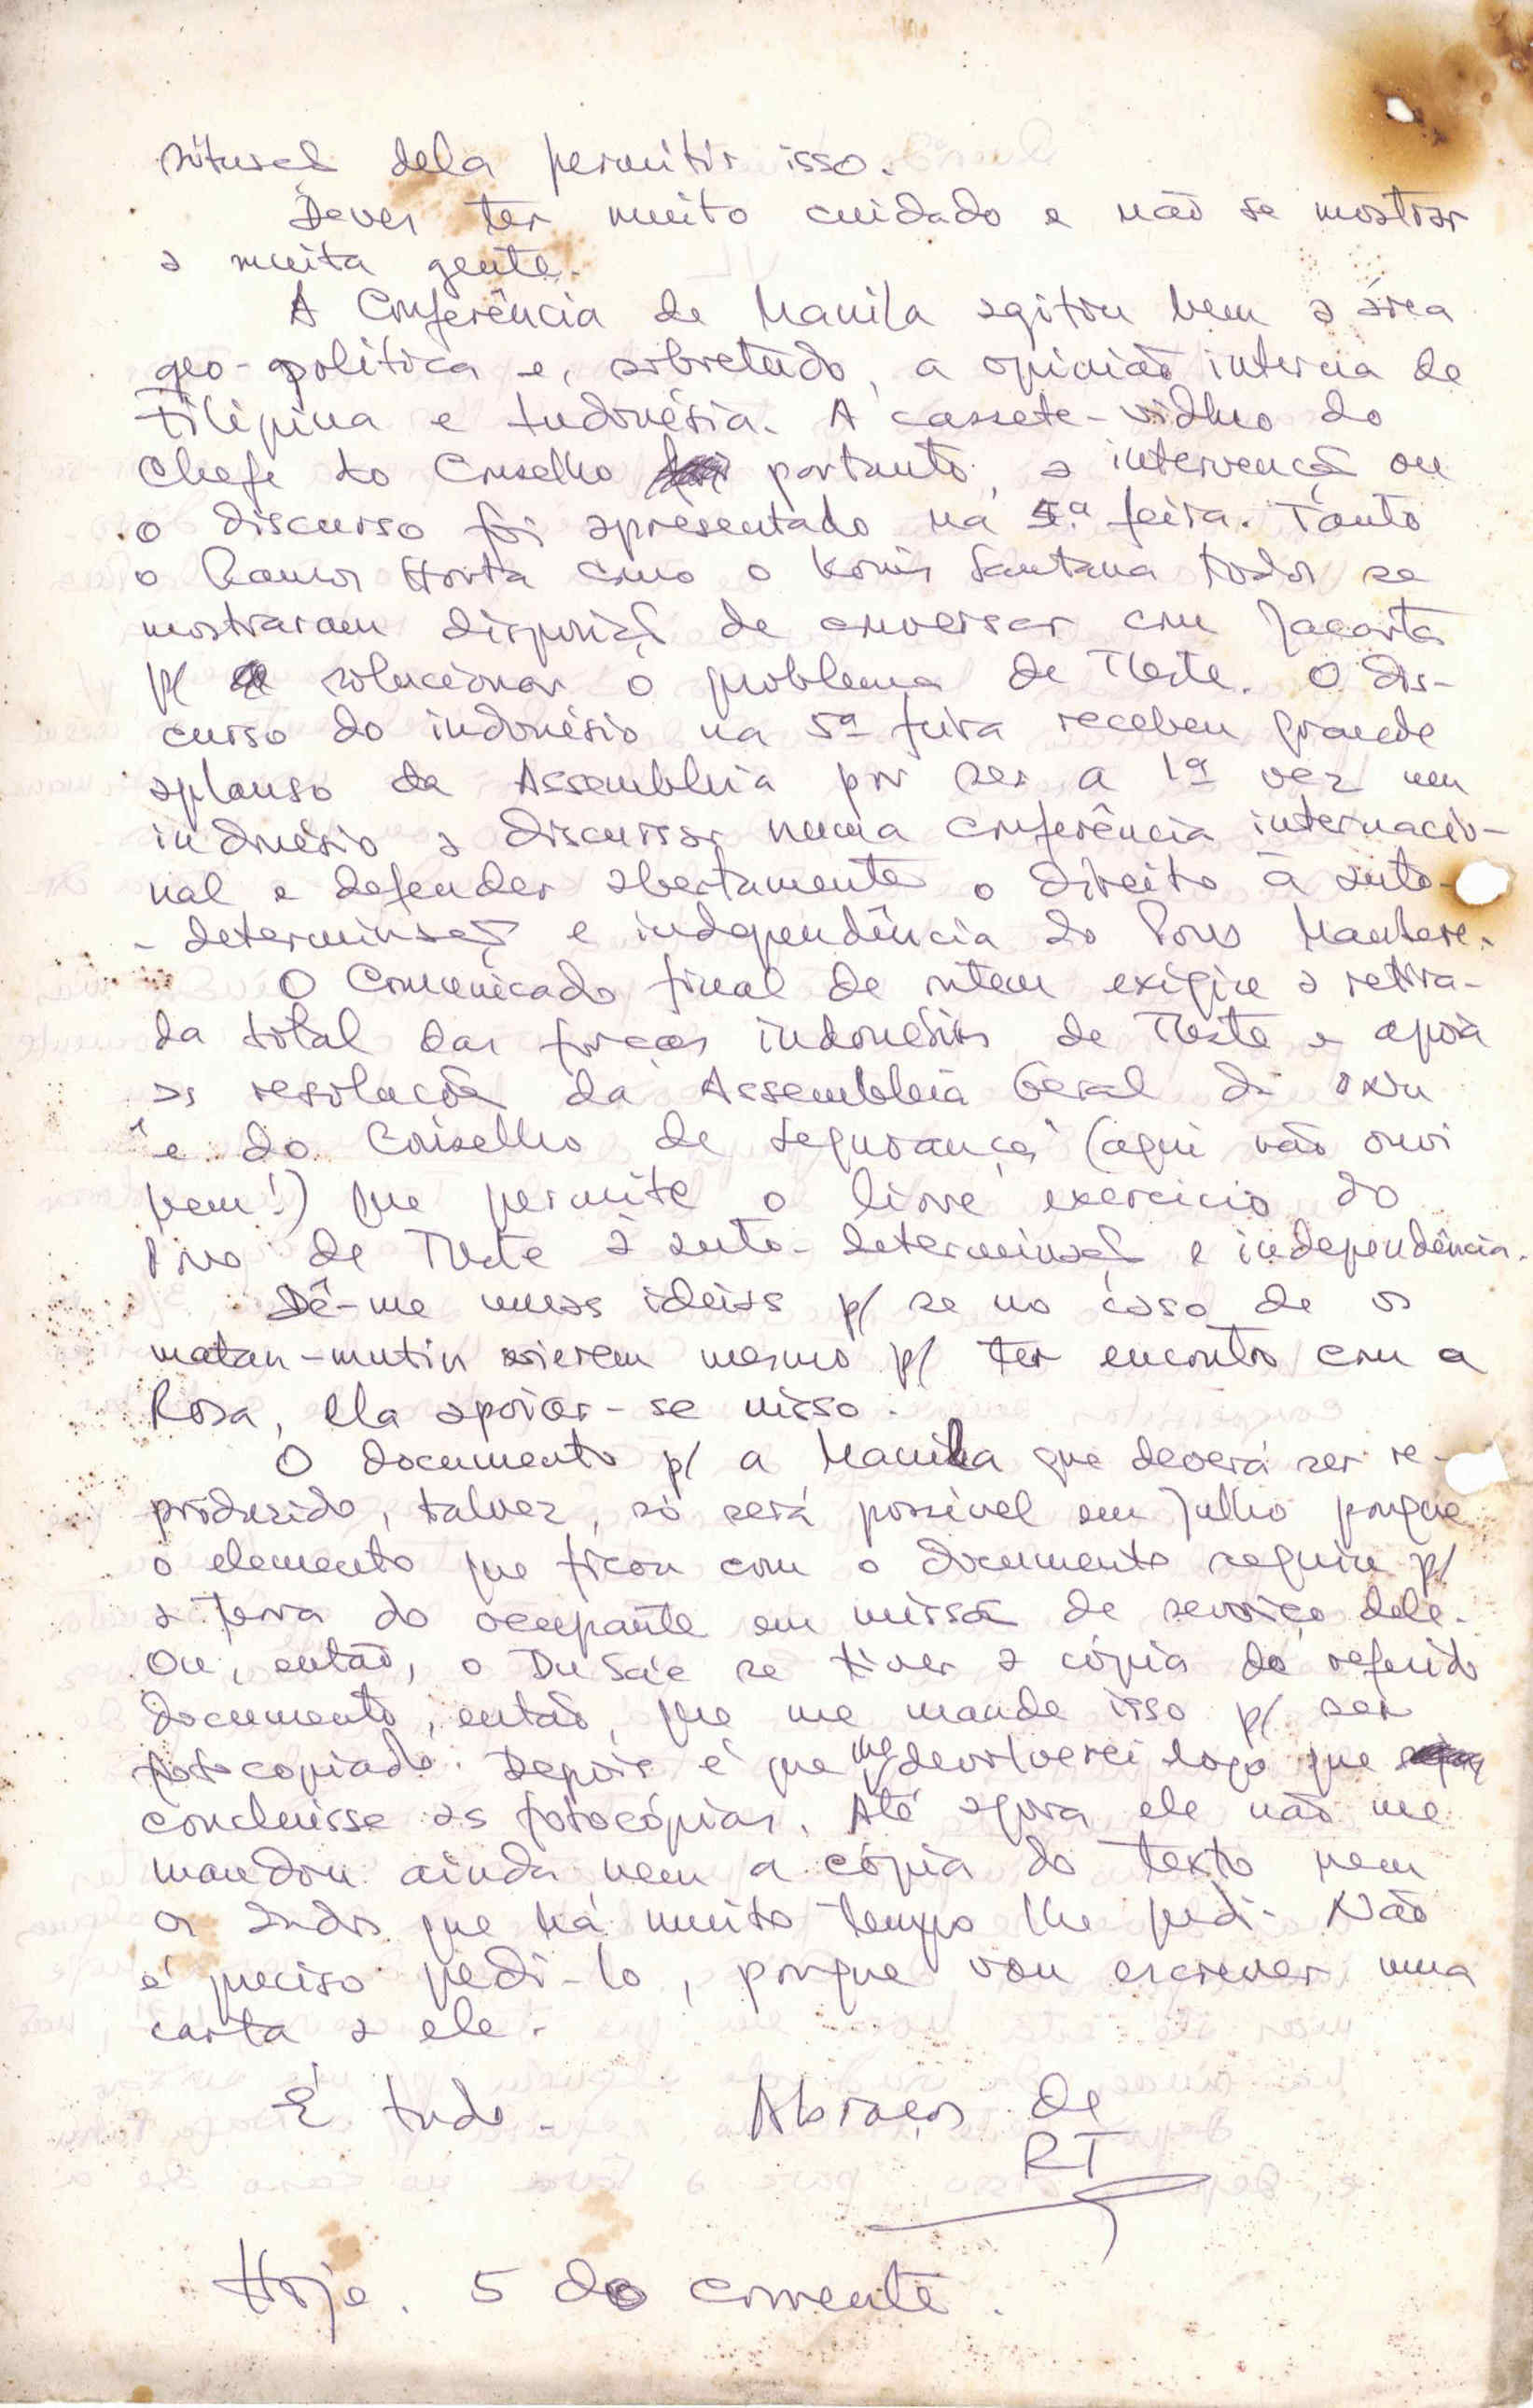 situação dela permitir isso.
Dever ter muito cuidado e não se mostrar
a muita gente.
A Conferência de Manila agitou bem a área
geo-política e, sobretudo, a opinião interna de
Filipina e Indonésia. A cassete-vídeo do
Chefe do Conselho portanto, a intervenção ou
o discurso foi apresentado na 5ª feira. Tanto
o Ramos Horta como o Konis Santana todos se
mostraram disposição de conversar com Jacarta
p/ solucionar o problema de TLeste. O dis-
curso do indonésio na 5ª feira recebeu grande
aplauso da Assembleia por ser a 1ª vez um
indonésio a discursar numa conferência internacio-
nal e defender abertamente o direito à auto-
- determinação e independência do Povo Maubere.
O Comunicado final de ontem exigiu a retira-
da total das forças indonésias de TLeste e apoia
as resoluções da Assembleia Geral da ONU
"e do Conselho de Segurança" (aqui não ouvi
bem!) que permite o livre exercício do
Povo de TLeste à auto-determinação e independência.
Dê-me umas ideias p/ se no caso de os
matan-mutin vierem mesmo p/ ter encontro com a
Rosa, ela apoiar-se nisso.
O documento p/ a Manila que deverá ser re-
produzido, talvez, só será possível em Julho porque
o elemento que ficou com o documento seguiu p/
a terra do ocupante em missão de serviço dele.
Ou, então, o DuSa'e se tiver a cópia do referido
documento, então, que me mande isso p/ ser
fotocopiado. Depois é que lhe devolverei logo que
concluisse as fotocópias. Até agora ele não me
mandou ainda nem a cópia do texto nem
os que há muito tempo lhe pedi. Não
é preciso pedi-lo, porque vou escrever uma
carta a ele.
É tudo. Abraços de
RT
Hoje. 5 do corrente.